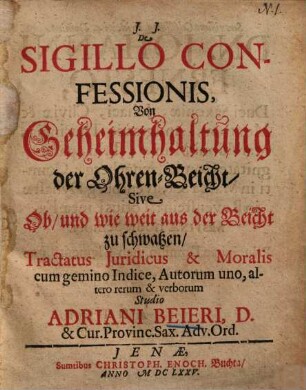 N.1.
J. J.
De
SIGILLO CON-
FESSIONIS,
Von
Geheimhaltung
der Ohren-Beicht/
Sive
Ob/ und wie weit aus der Beicht
zu schwatzen/
Tractatus Juridicus & Moralis
cum gemino Indice, Autorum uno, al-
tero rerum & verborum
Studio
ADRIANI BEIERI, D.
& Cur. Provinc. Sax. Adv. Ord.
JENÆ,
Sumtibus CHRISTOPH. ENOCH. Buchta/
ANNO M DC LXXV.